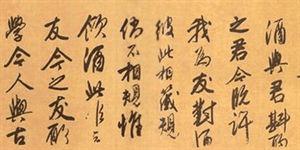 酒與君斟酌
之君今既許
我為友對酒
彼此相箴規
倘不相規惟
傾酒此
友今之友
學今人與古